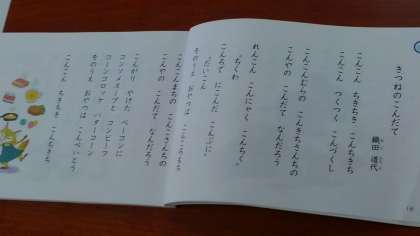 きつねのこんだて
織田 道代
こんこん ちきちき こんちきち
こんこん つくつく こんづくし
こんきちさんちの
こんやの こんだて なんだろう
れんこん こんにゃく
ちくわ
にこんだ
だいこん こんぶに
そのうえ おやつは
こんこんまちの こんこさんちの
こんやの こんだて なんだろう
こんがり やけた ベーコンに
コンソメスープと コンビーフ
コーンコロッケ バターコーン
そのうえ おやつは こんぺいとう
こんこん ちきちき こんちきち